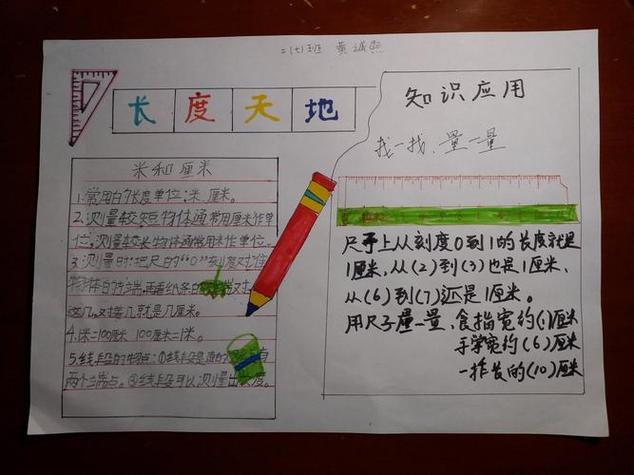 二(七)班 黄诚熙
长度天地
米和厘米
1.常用的长度单位:米、厘米。
2.测量较短物体通常用厘米作单
位,测量较长物体通常用米作单位。
3.测量时:把尺的“0”刻度对准
物体的 端,再看纸条的 端对
这几,对着几就是几厘米。
4.1米=100厘米 100厘米=1米。
5.线段的特点:①线段是直的 有
两个端点。②线段可以测量出长度。
知识应用
找一找、量一量
尺子上从刻度0到1的长度就是
1厘米,从(2)到(3)也是1厘米、
从(6)到(7)还是1厘米。
用尺子量一量,食指宽约(1)厘米
手掌宽约(6)厘米
一拃长约(10)厘米